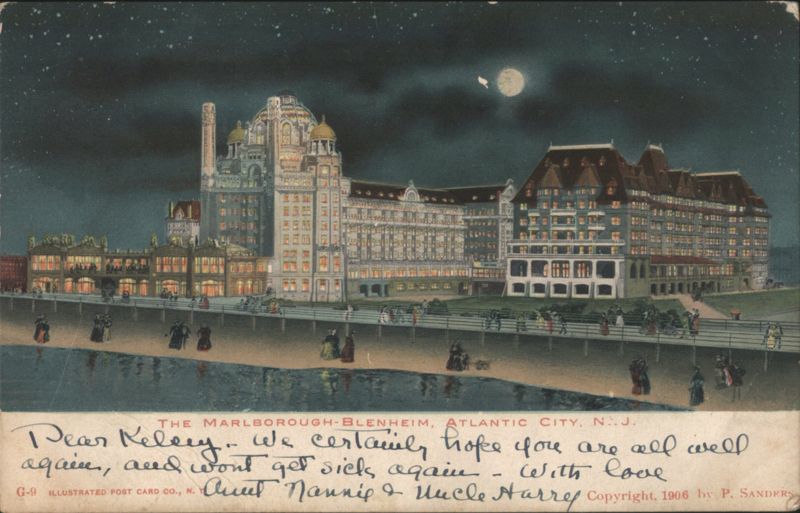 THE MARLBOROUGH-BLENHEIM, ATLANTIC CITY, N. J.
Dear Kelsey - We certainly hope you are all well
again, and wont get sick again - With love
Aunt Nannie & Uncle Harry
G-9 ILLUSTRATED POST CARD CO., N. Y. Copyright, 1906 by P. SANDERS